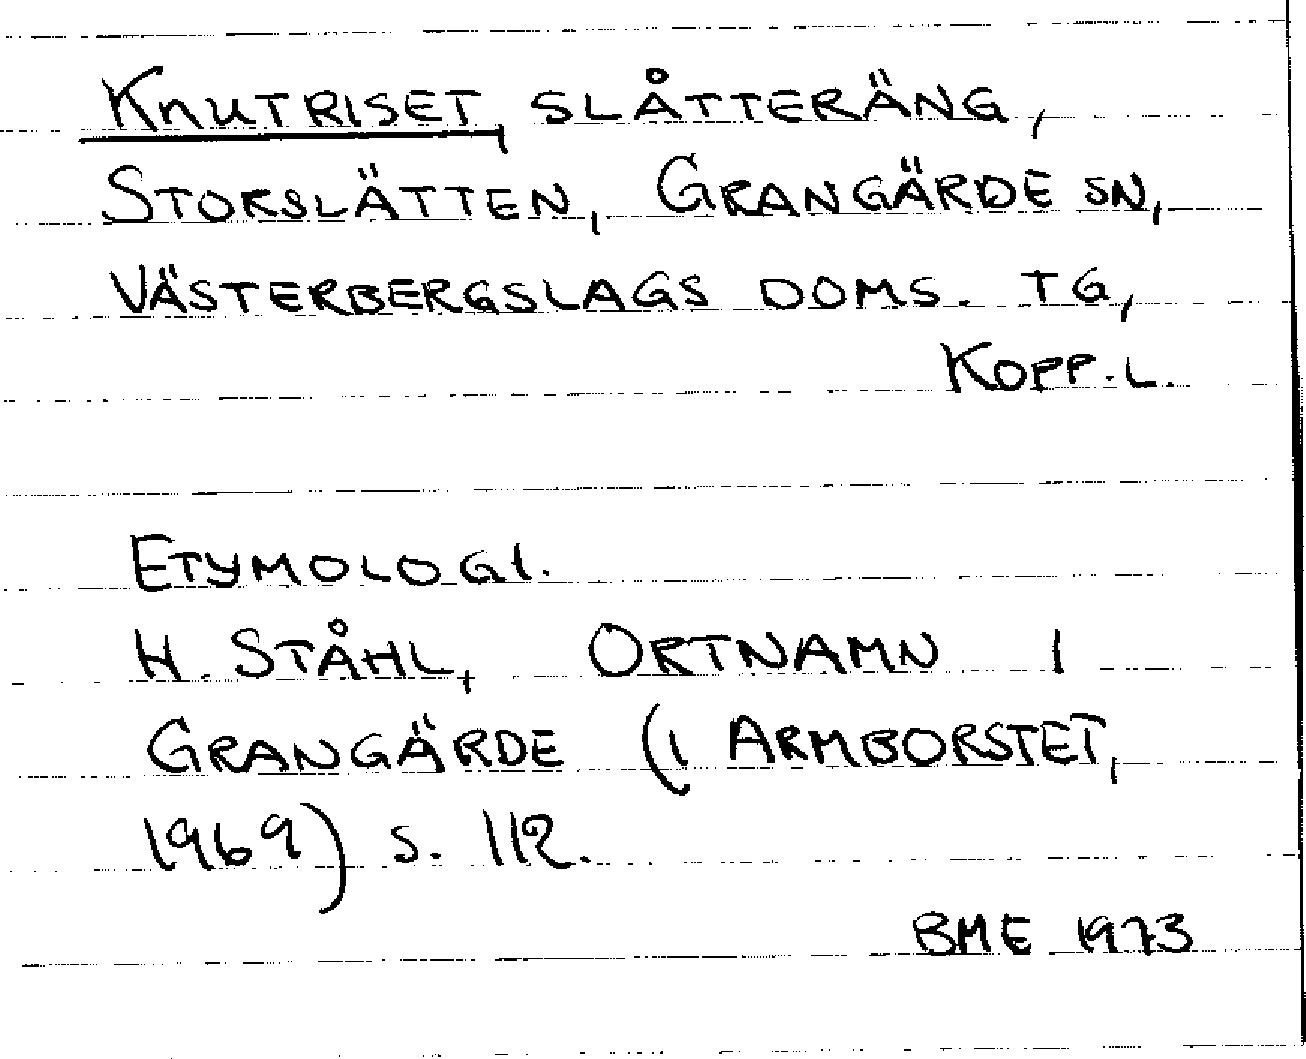 Knutriset, slåtteräng,
Storslätten, Grangärde sn,
Västerbergslags doms. tg,
Kopp.l.
Etymologi.
H. Ståhl, Ortnamn i
Grangärde (i Armborstet,
1969) s. 112.
BME 1973